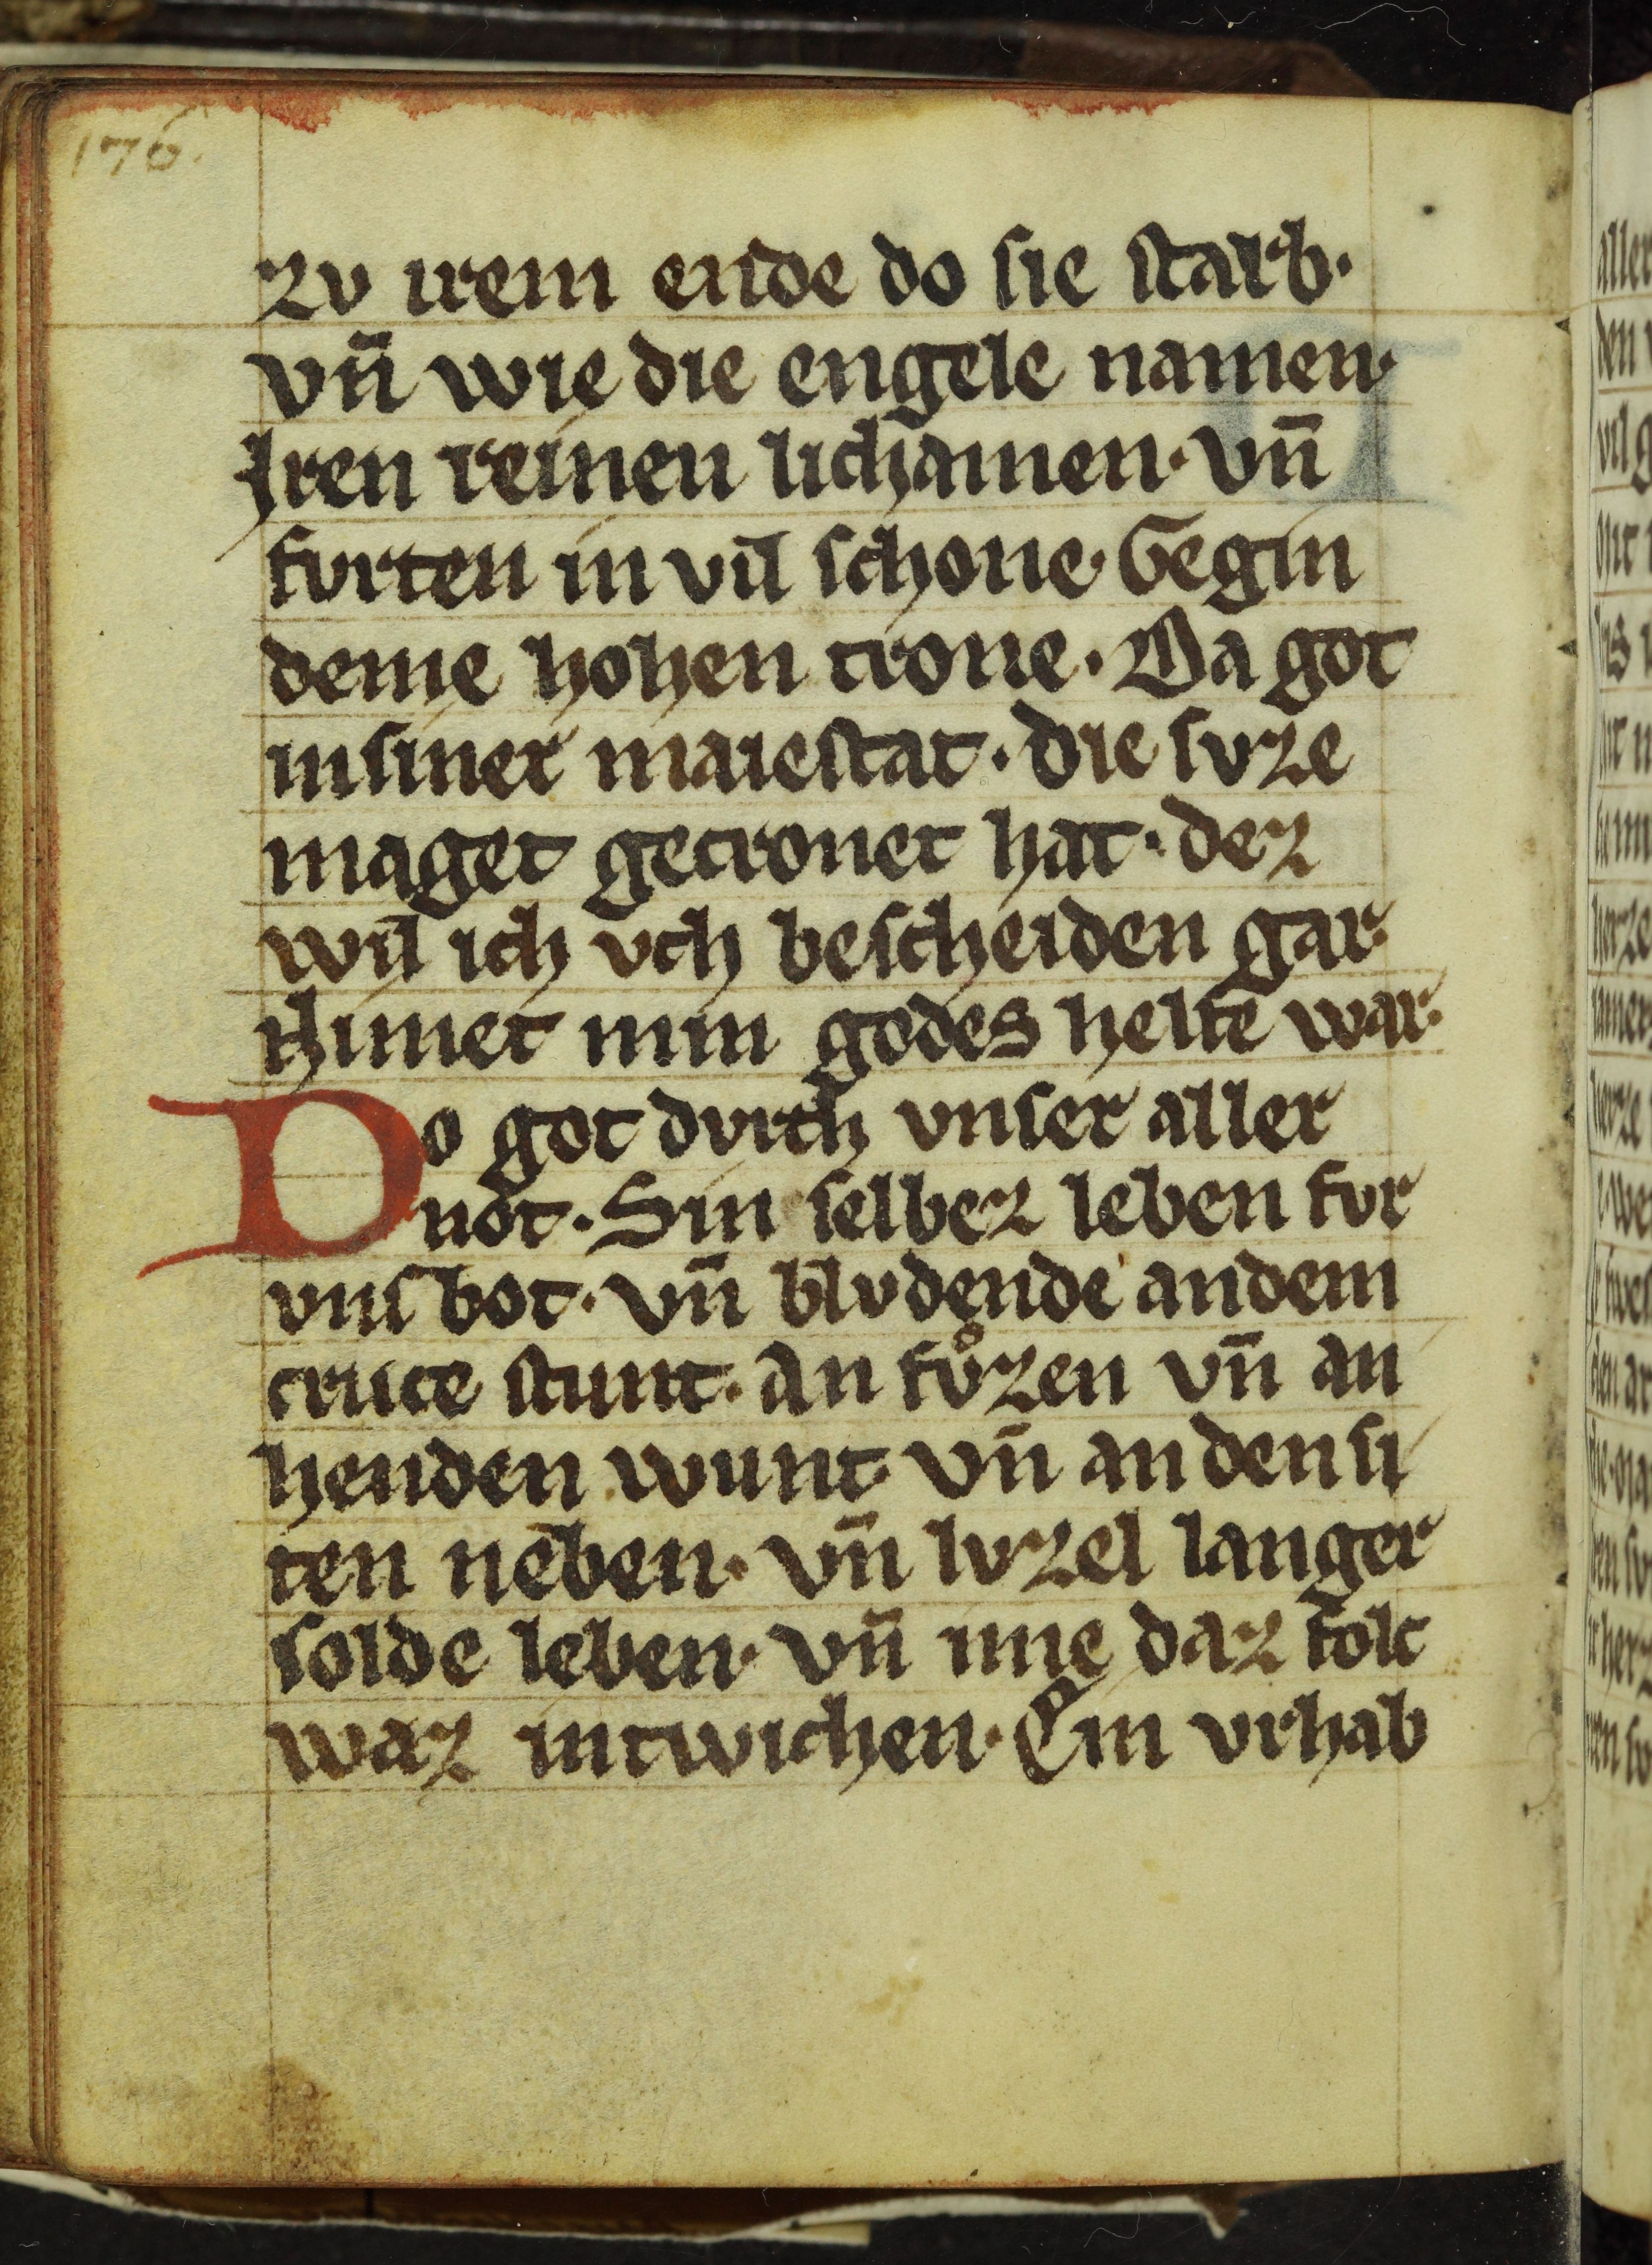 176.
zv irem ende do sie starb·
vn̄ wie die engele namen·
Jren reinen lichamen· vn̄
furten in vil schone· Gegin
deme hohen trone· Da got
insiner maiestat· die suze
maget gecronet hat· dez
wil ich vch bescheiden gar·
Nimet min godes helfe war·
Do got durch vnser aller
not· Sin selbez leben fur
vns bot· vn̄ bludende andem
cruce stunt· An fuͦzen vn̄ an
henden wunt· vn̄ an den si
ten neben· vn̄ luzel langer
solde leben· vn̄ ime daz folc
waz intwichen· Ein vrhab